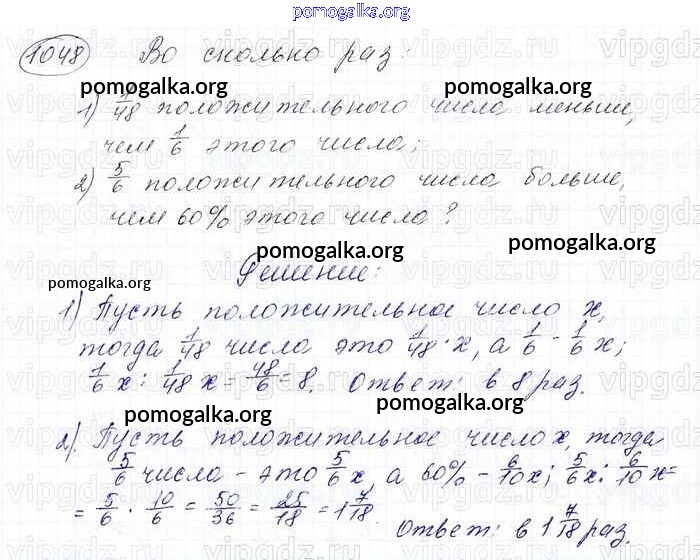 pomogalka.org
1048 Во сколько раз:
pomogalka.org pomogalka.org
1) 1/48 положительного числа меньше,
чем 1/6 этого числа;
2) 5/6 положительного числа больше,
чем 60% этого числа?
pomogalka.org pomogalka.org
Решение:
1) Пусть положительное число x,
тогда 1/48 числа это 1/48 · x, а 1/6 - 1/6 x;
1/6 x : 1/48 x = 48/6 = 8. Ответ: в 8 раз.
pomogalka.org pomogalka.org
2). Пусть положительное число x, тогда
5/6 числа - это 5/6 x, а 60% - 6/10 x; 5/6 x : 6/10 x =
= 5/6 · 10/6 = 50/36 = 25/18 = 1 7/18.
Ответ: в 1 7/18 раз.
vipgdz.ru